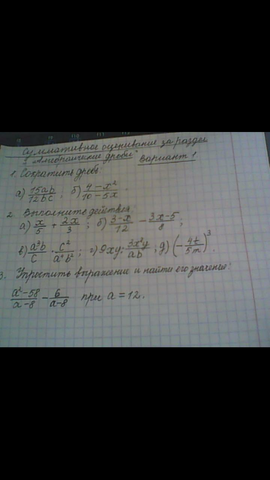 Суммативное оценивание за раздел
"Алгебраические дроби" Вариант 1
1. Сократить дробь:
а) 15ab/12bc ; б) 4-x²/10-5x
2. Выполните действия
а) x/5 + 2x/3 ; б) 3-x/12 - 3x-5/8 ;
в) a³b/c · c²/a²b² ; г) 9xy : 3x²y/ab ; д) (-4t/5m)³
3. Упростить выражение и найти его значение:
a²-58/a-8 - 6/a-8 при a = 12.